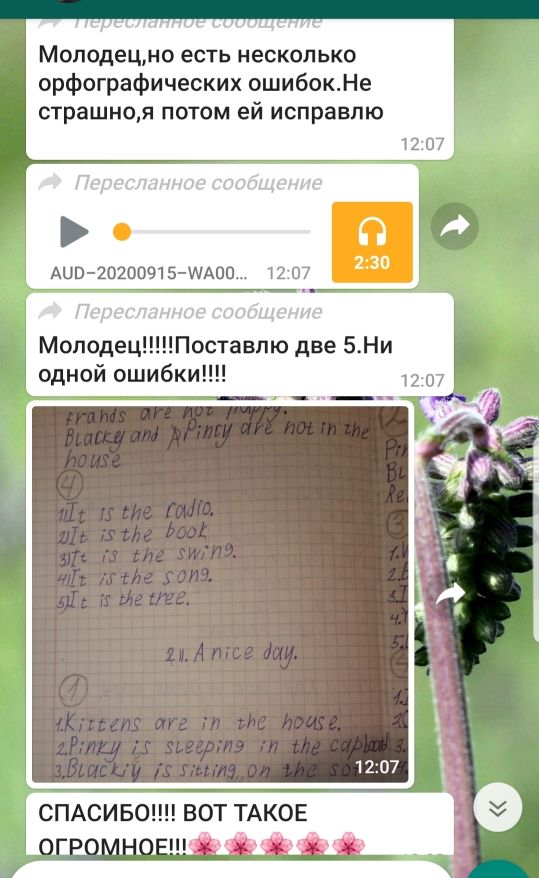 Пересланное сообщение
Молодец,но есть несколько
орфографических ошибок.Не
страшно,я потом ей исправлю
12:07
Пересланное сообщение
2:30
AUD-20200915-WA00... 12:07
Пересланное сообщение
Молодец!!!!!Поставлю две 5.Ни
одной ошибки!!!!
12:07
frands are not happy.
Blacky and Pinky are not in the
house
4
1) It is the radio.
2) It is the book
3) It is the swing.
4) It is the song.
5) It is the tree.
2 u. A nice day.
1
1. Kittens are in the house.
2. Pinky is sleeping in the
3. Blackiy is sitting on the
2
Pin
Bl
Re
3
1.
2.
3.I
4.
5.
3.
12:07
СПАСИБО!!!! ВОТ ТАКОЕ
ОГРОМНОЕ!!!🌸🌸🌸🌸🌸